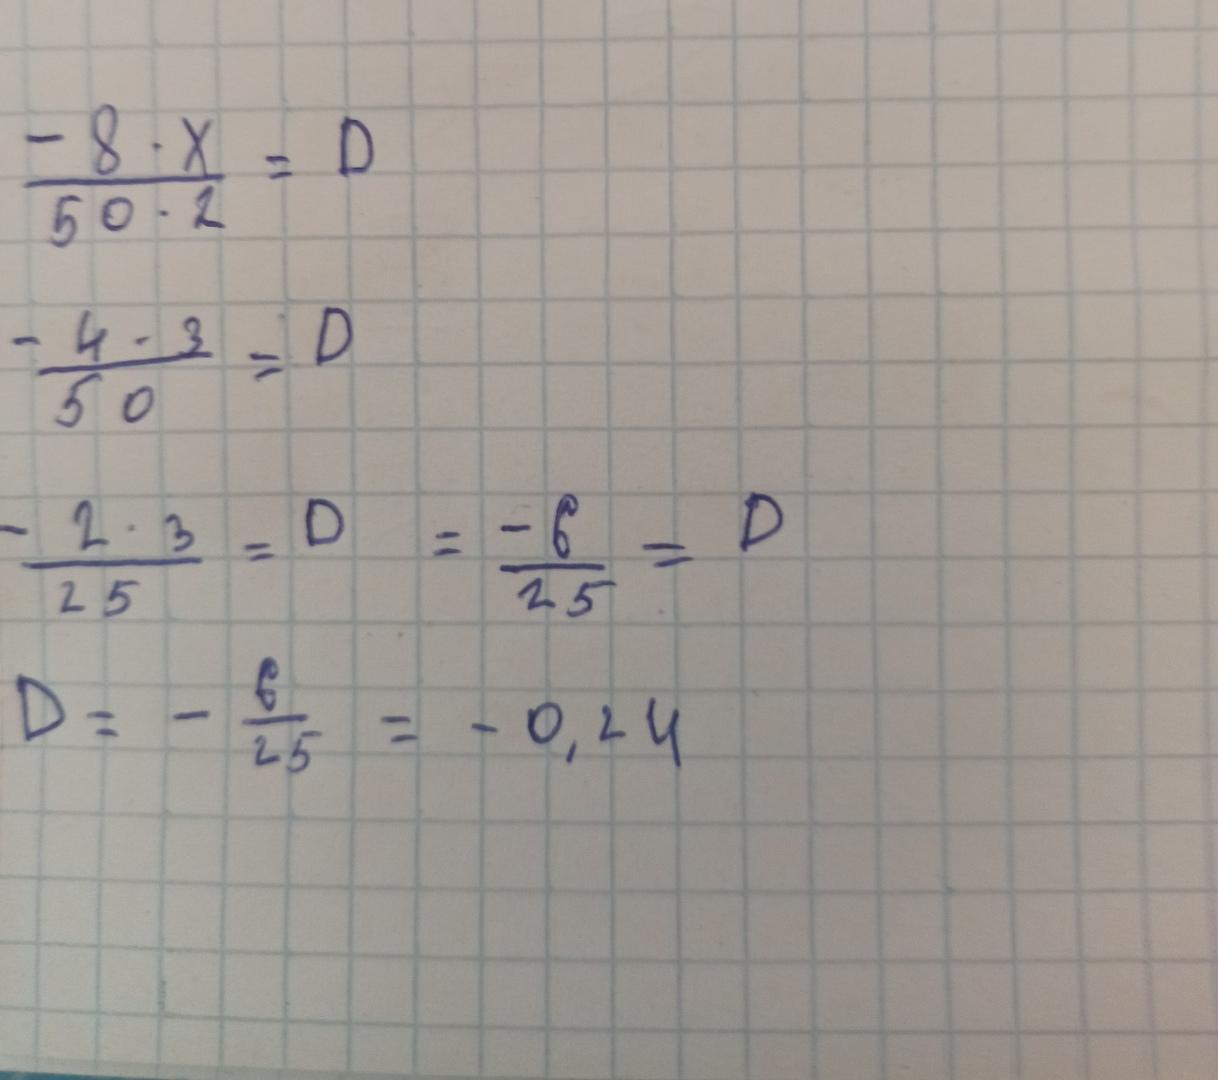 - 8 · X / 50 · 2 = D
- 4 · 3 / 50 = D
- 2 · 3 / 25 = D = - 6 / 25 = D
D = - 6 / 25 = - 0,24